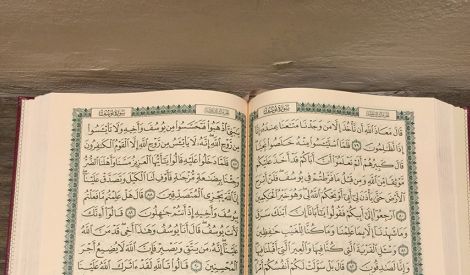 سورة يوسف
قَالَ مَعَاذَ ٱللَّهِ أَن نَّأْخُذَ إِلَّا مَن وَجَدْنَا مَتَٰعَنَا عِندَهُۥٓ إِنَّآ
إِذًا لَّظَٰلِمُونَ ٧٩ فَلَمَّا ٱسْتَيْـَٔسُوا۟ مِنْهُ خَلَصُوا۟ نَجِيًّا
قَالَ كَبِيرُهُمْ أَلَمْ تَعْلَمُوٓا۟ أَنَّ أَبَاكُمْ قَدْ أَخَذَ عَلَيْكُم
مَّوْثِقًا مِّنَ ٱللَّهِ وَمِن قَبْلُ مَا فَرَّطتُمْ فِى يُوسُفَ فَلَنْ أَبْرَحَ
ٱلْأَرْضَ حَتَّىٰ يَأْذَنَ لِىٓ أَبِىٓ أَوْ يَحْكُمَ ٱللَّهُ لِى وَهُوَ خَيْرُ ٱلْحَٰكِمِينَ
٨٠ ٱرْجِعُوٓا۟ إِلَىٰٓ أَبِيكُمْ فَقُولُوا۟ يَٰٓأَبَانَآ إِنَّ ٱبْنَكَ سَرَقَ
وَمَا شَهِدْنَآ إِلَّا بِمَا عَلِمْنَا وَمَا كُنَّا لِلْغَيْبِ حَٰفِظِينَ
٨١ وَسْـَٔلِ ٱلْقَرْيَةَ ٱلَّتِى كُنَّا فِيهَا وَٱلْعِيرَ ٱلَّتِىٓ أَقْبَلْنَا
فِيهَا وَإِنَّا لَصَٰدِقُونَ ٨٢ قَالَ بَلْ سَوَّلَتْ لَكُمْ
سورة يوسف
يَٰبَنِىَّ ٱذْهَبُوا۟ فَتَحَسَّسُوا۟ مِن يُوسُفَ وَأَخِيهِ وَلَا تَا۟يْـَٔسُوا۟
مِن رَّوْحِ ٱللَّهِ إِنَّهُۥ لَا يَا۟يْـَٔسُ مِن رَّوْحِ ٱللَّهِ إِلَّا ٱلْقَوْمُ ٱلْكَٰفِرُونَ
٨٧ فَلَمَّا دَخَلُوا۟ عَلَيْهِ قَالُوا۟ يَٰٓأَيُّهَا ٱلْعَزِيزُ مَسَّنَا وَأَهْلَنَا ٱلضُّرُّ
وَجِئْنَا بِبِضَٰعَةٍ مُّزْجَىٰةٍ فَأَوْفِ لَنَا ٱلْكَيْلَ وَتَصَدَّقْ عَلَيْنَآ
إِنَّ ٱللَّهَ يَجْزِى ٱلْمُتَصَدِّقِينَ ٨٨ قَالَ هَلْ عَلِمْتُم مَّا فَعَلْتُم
بِيُوسُفَ وَأَخِيهِ إِذْ أَنتُمْ جَٰهِلُونَ ٨٩ قَالُوٓا۟ أَءِنَّكَ
لَأَنتَ يُوسُفُ قَالَ أَنَا۠ يُوسُفُ وَهَٰذَآ أَخِى قَدْ مَنَّ ٱللَّهُ
عَلَيْنَآ إِنَّهُۥ مَن يَتَّقِ وَيَصْبِرْ فَإِنَّ ٱللَّهَ لَا يُضِيعُ أَجْرَ
ٱلْمُحْسِنِينَ ٩٠ قَالُوا۟ تَٱللَّهِ لَقَدْ ءَاثَرَكَ ٱللَّهُ عَلَيْنَا